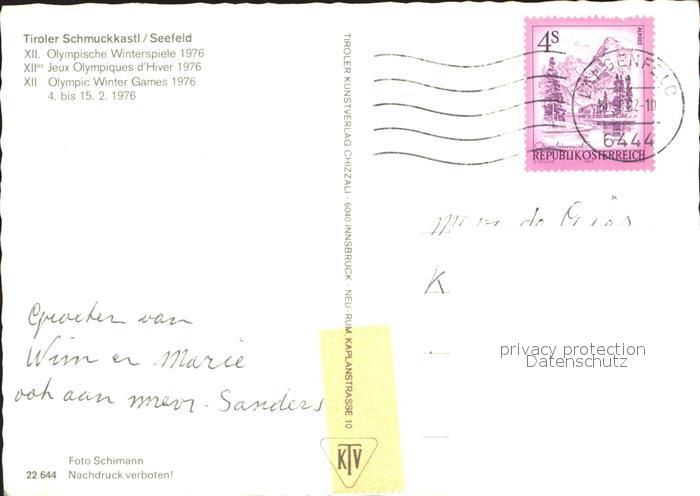 Tiroler Schmuckkastl / Seefeld
XII. Olympische Winterspiele 1976
XIIes Jeux Olympiques d'Hiver 1976
XII Olympic Winter Games 1976
4. bis 15. 2. 1976
TIROLER KUNSTVERLAG CHIZZALI · 6040 INNSBRUCK - NEU-RUM, KAPLANSTRASSE 10
4S
ALMSEE
REPUBLIK ÖSTERREICH
LÄNGENFELD
6444
K
Groeten van
Wim en Marie
ook aan mevr. Sanders
privacy protection
Datenschutz
KTV
Foto Schimann
22 644 Nachdruck verboten!